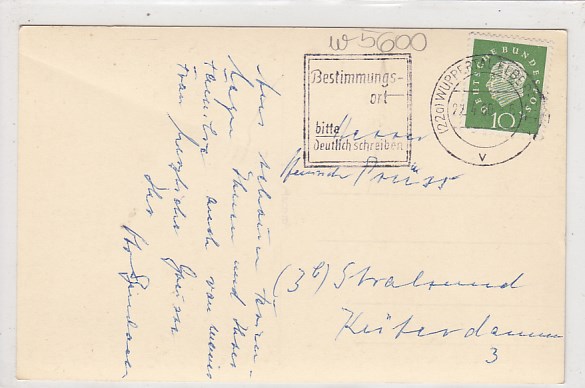 W 5600
Bestimmungs-
ort
bitte
deutlich schreiben
(22a) WUPPERTAL
22
DEUTSCHE BUNDESPOST
10
v
Herrn
Heinrich
(3b) Stralsund
Küterdamm
3
Aus schönen
Ihnen und Ihrer
Familie auch von meiner
Frau herzliche Grüsse
Ihr